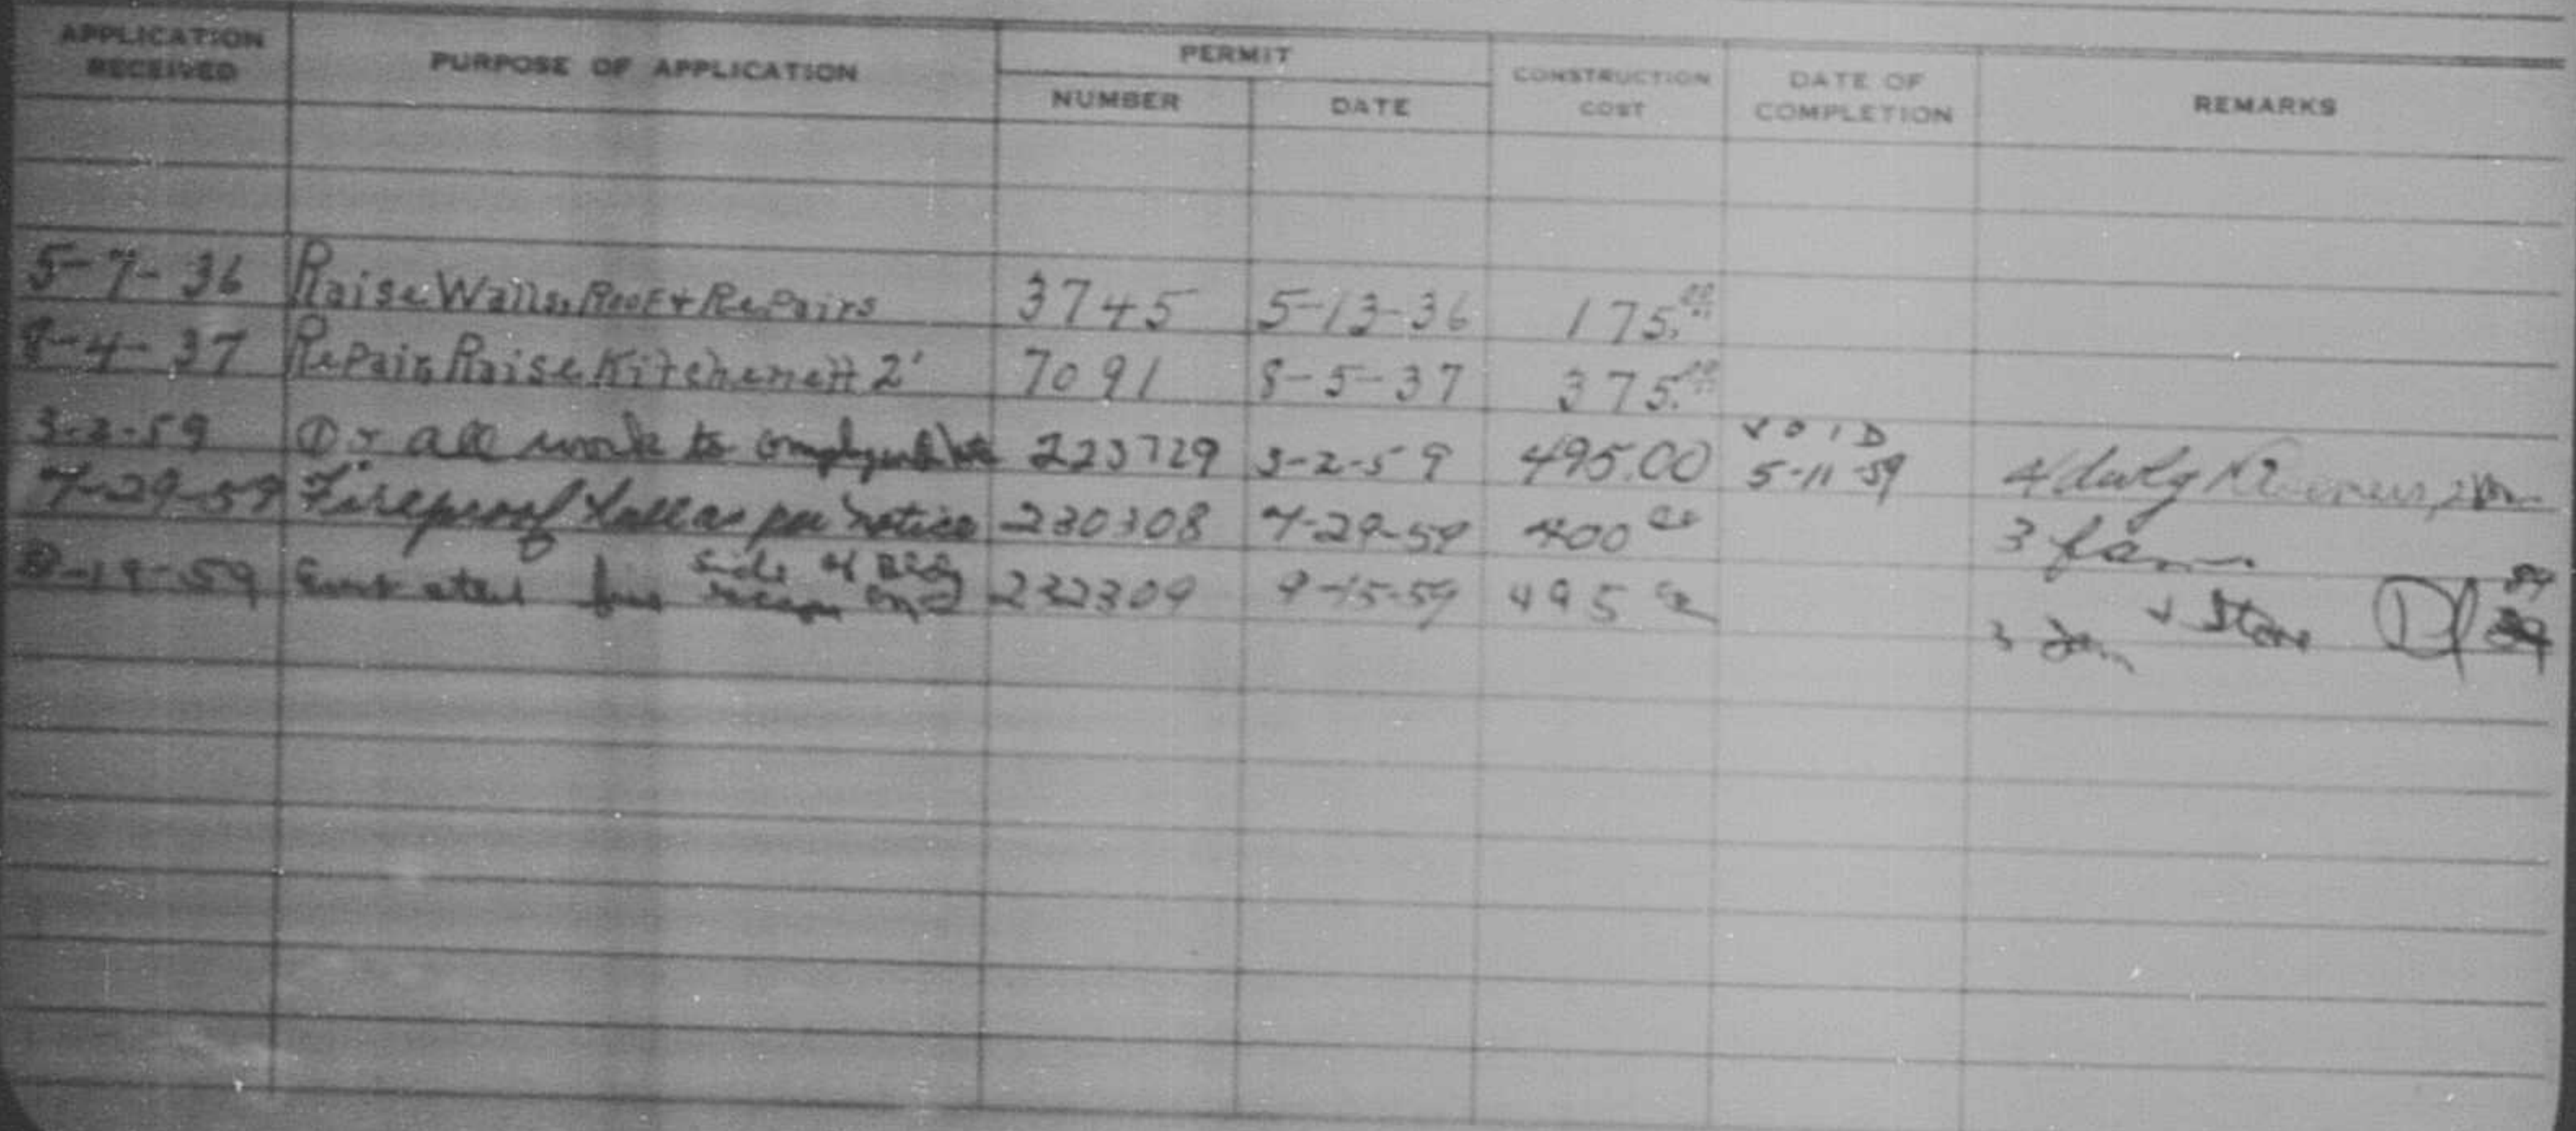 APPLICATION RECEIVED PURPOSE OF APPLICATION PERMIT NUMBER DATE CONSTRUCTION COST DATE OF COMPLETION REMARKS
5-7-36 Raise Walls, Roof + Repairs 3745 5-13-36 175.00
8-4-37 Repair, Raise Kitchenett 2' 7091 8-5-37 375.00
3-2-59 all work to 223729 3-2-59 495.00 VOID 5-11-59 4
7-29-59 Fireproof as per notice 230308 7-29-59 400 3 fam
8-19-59 side of Bldg 232309 9-15-59 495 3 fam + Store